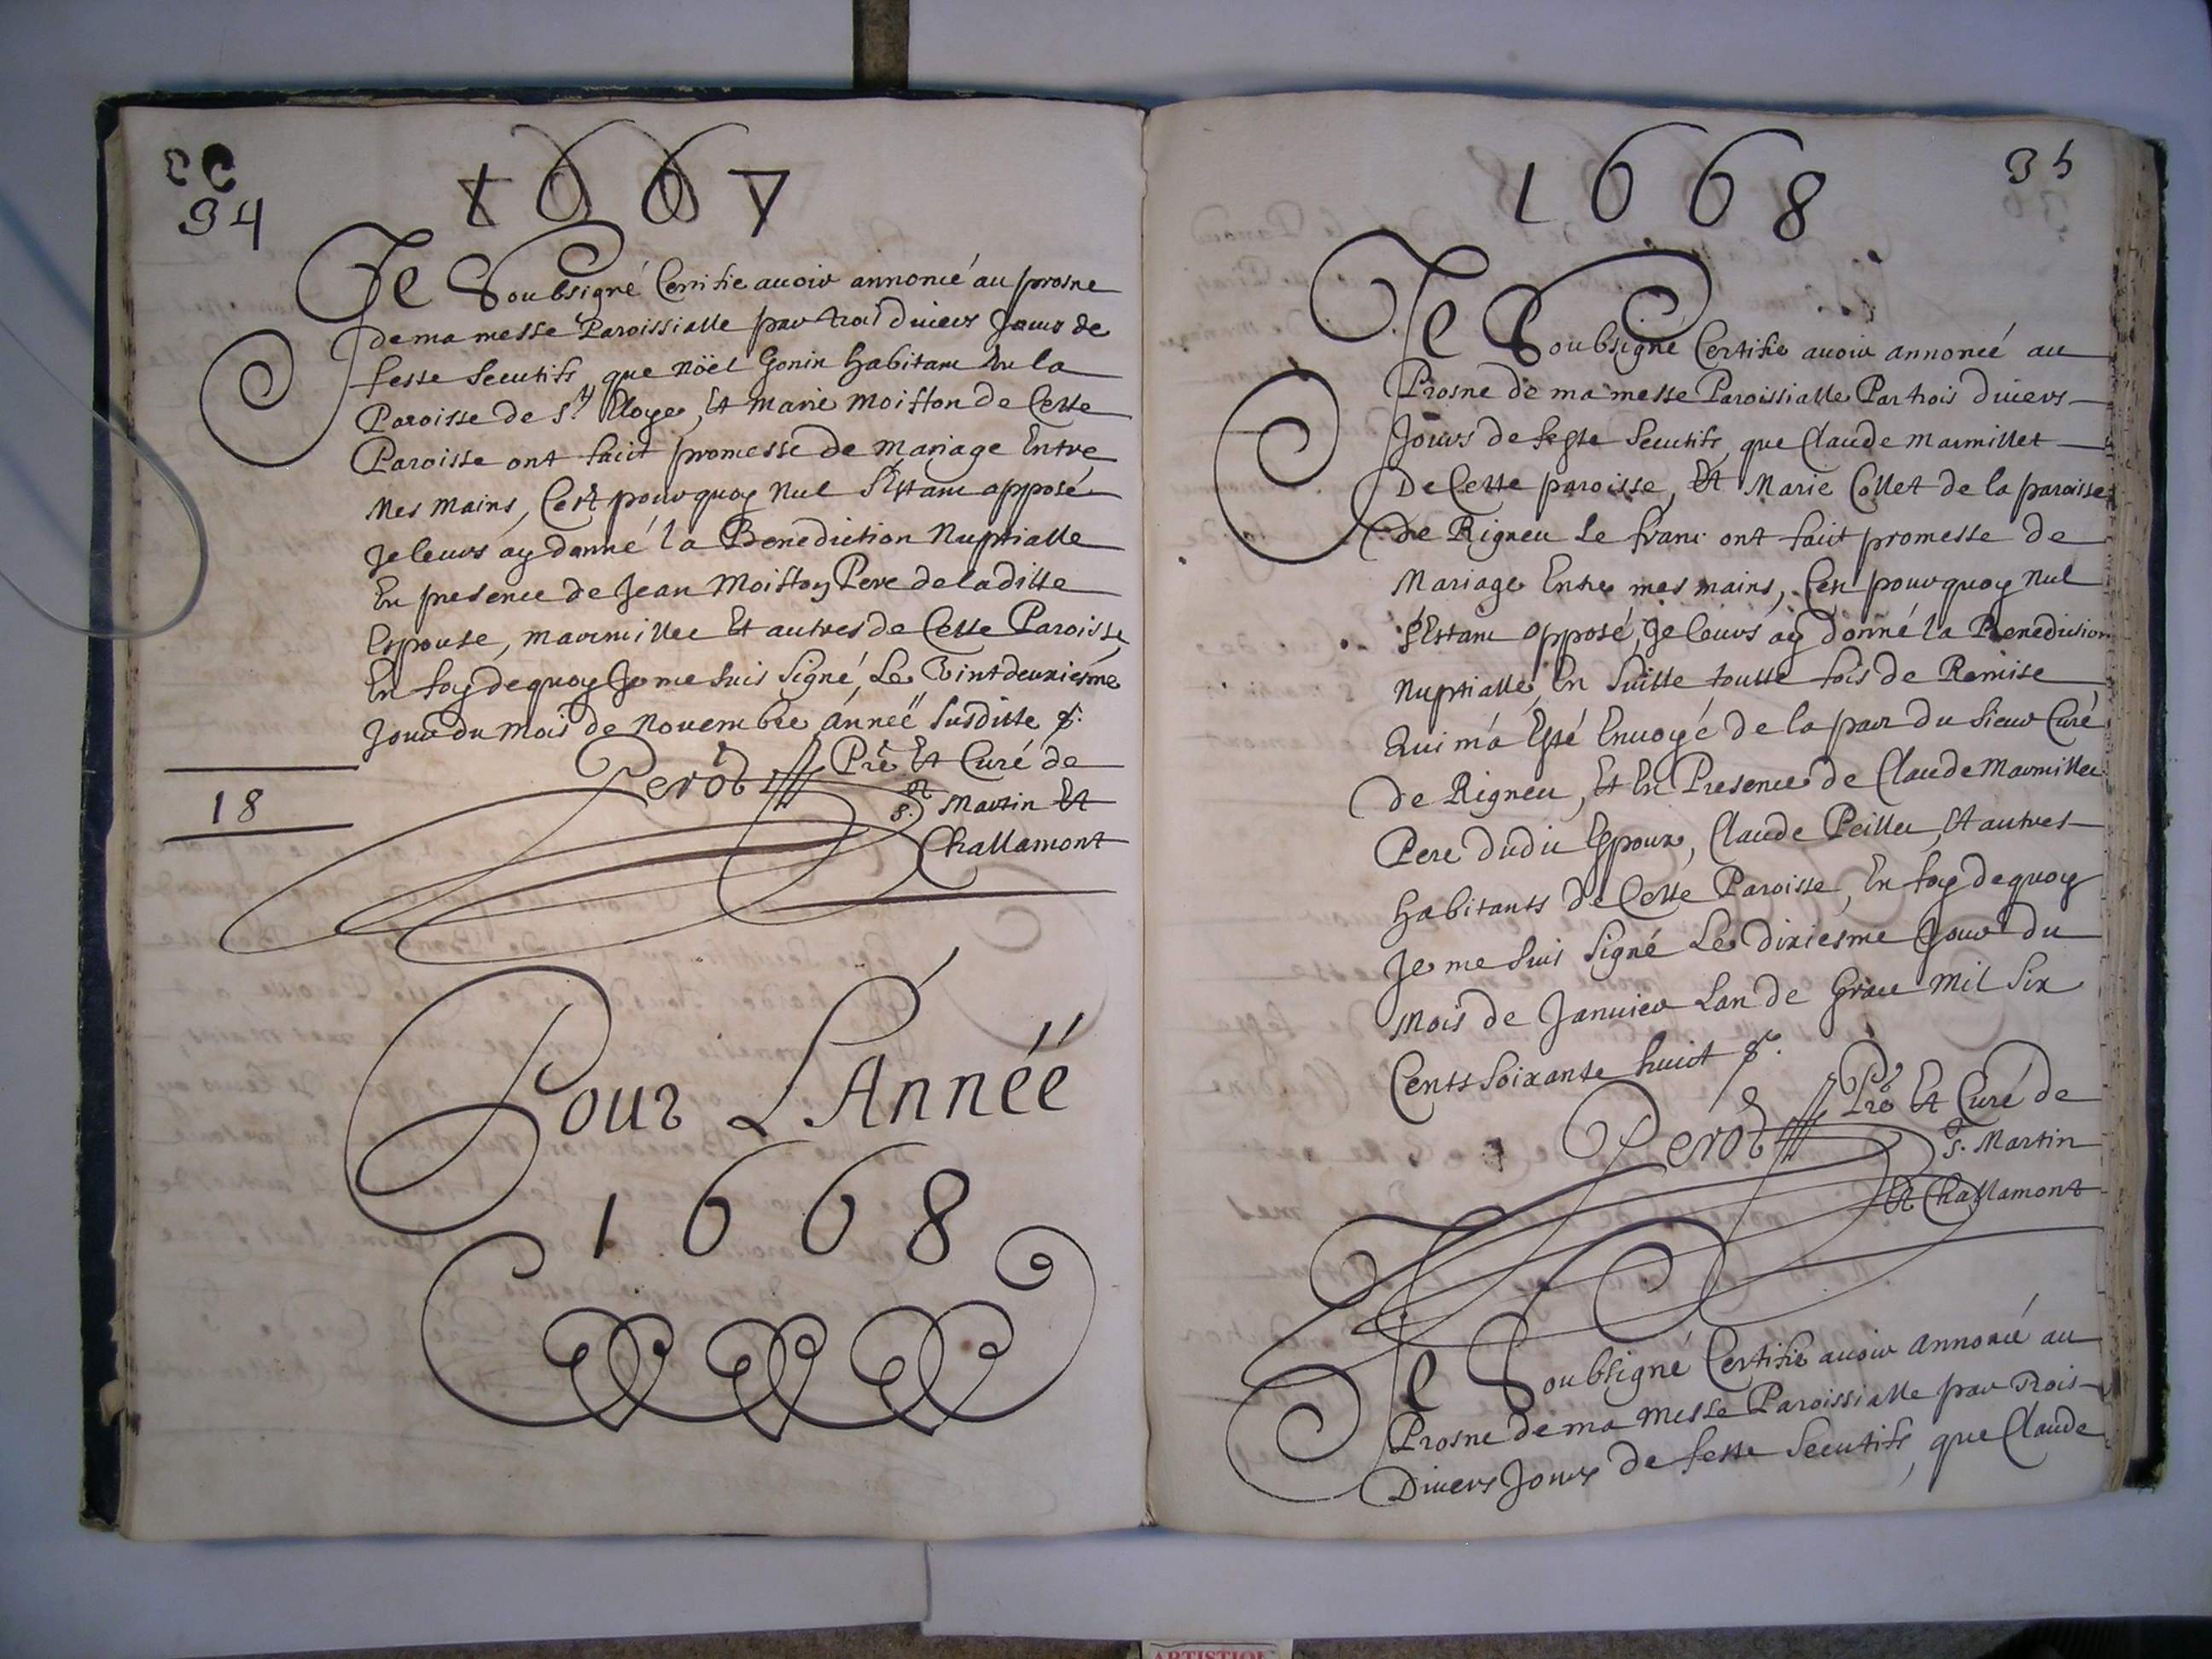 34
1667
Je Soubsigné Certifie auoir annoncé au prosne
de ma messe Paroissialle par trois diuers Jours de
feste secutifs, que Nöel Gonin habitant En la
Paroisse de St Eloye, Et Marie Moisson de Cette
Paroisse ont faict promesse de Mariage Entre
Mes mains, C'est pourquoy Nul s'Estant opposé
Je leurs ay donné la Benediction Nuptialle
En presence de Jean Moisson Pere de laditte
Espouse, Marmillet Et autres de Cette Paroisse,
En foy dequoy Je me suis signé, Le Vint deuxiesme
Jour du Mois de Nouembre Anneë susditte &.
Perod Pre Et Curé de
18
St Martin Et
Challamont
Pour L'Année
1668
35
1668
Je Soubsigné Certifie auoir annoncé au
Prosne de ma messe Paroissialle Par trois diuers
Jours de feste secutifs, que Claude Marmillet
De Cette paroisse, Et Marie Collet de la paroisse
de Rigneu le franc ont faict promesse de
Mariage Entre mes mains, C'en pourquoy Nul
s'Estant opposé, Je leurs ay donné la Benediction
Nuptialle, En suitte toutte fois de Remise
Qui m'a Esté Enuoyé de la part du sieur Curé
de Rigneu, Et En Presence de Claude Marmillet
Pere dudit Espoux, Claude Peillet, Et autres
habitants de Cette Paroisse, En foy dequoy
Je me suis signé Le dixiesme Jour du
Mois de Januier Lan de Grace Mil Six
Cents soixante huict &.
Perod Pre Et Curé de
St Martin
Et Challamont
Je Soubsigné Certifie auoir annoncé au
Prosne de ma Messe Paroissialle par Trois
Diuers Jours de feste secutifs, que Claude